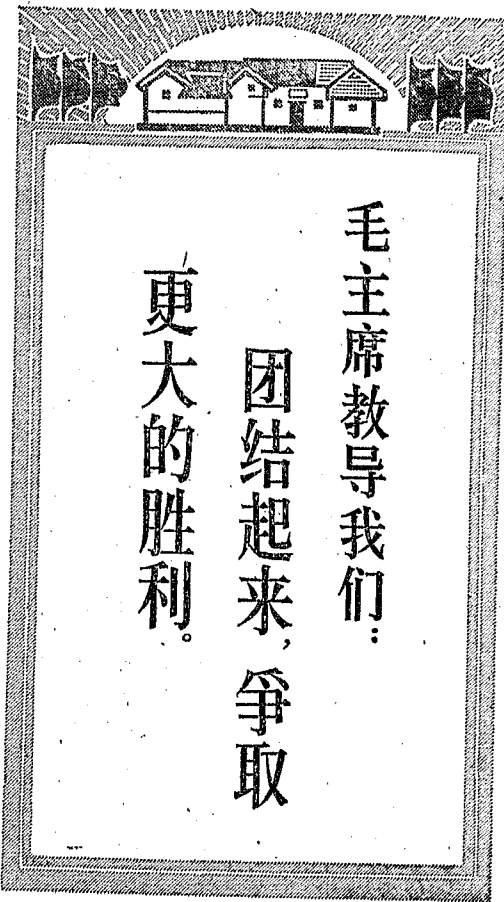 毛主席教导我们：
团结起来，爭取
更大的胜利。